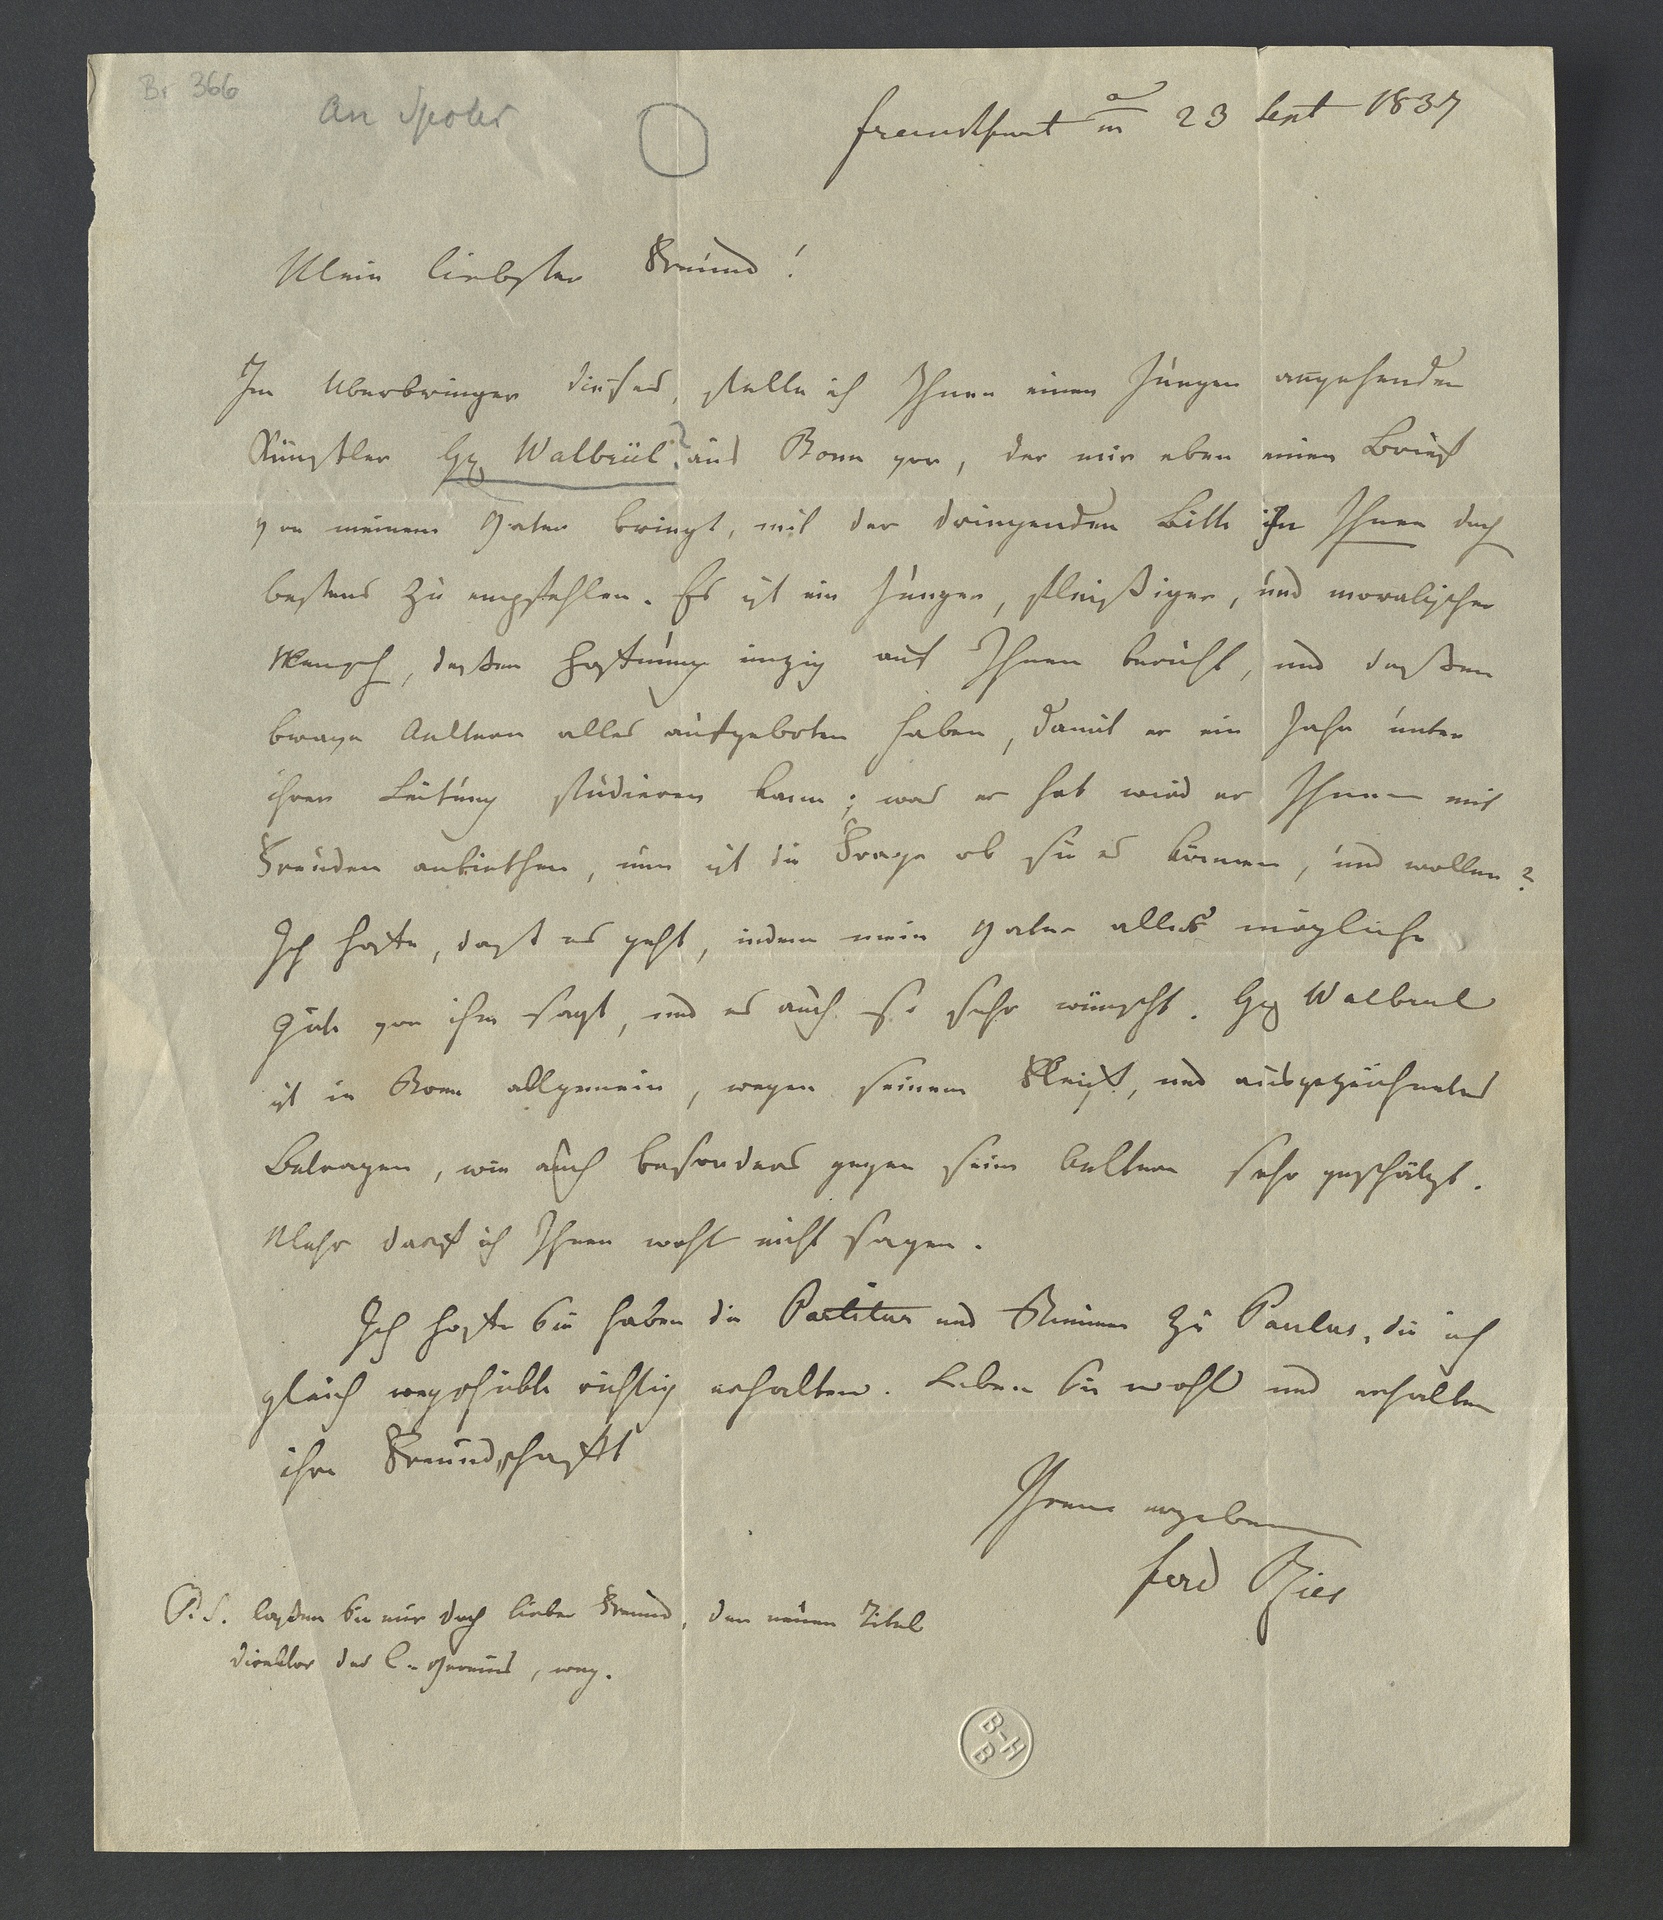 Br 366
An Spohr
Frankfurt a/m 23 Sept 1837
Mein liebster Freund!
Im Uberbringer dieses, stelle ich Ihnen einen jungen angehenden
Künstler Hr Walbrül? aus Bonn vor, der mir eben einen Brief
von meinem Vater bringt, mit der dringenden Bitte ihn Ihnen doch
bestens zu empfehlen. Es ist ein junger, fleißiger, und moralischer
Mensch, deßen Hoffnung einzig auf Ihnen beruht, und deßen
brave Aeltern alles aufgeboten haben, damit er ein Jahr unter
ihrer Leitung studieren kann; was er hat wird er Ihnen mit
Freuden anbiethen, nun ist die Frage ob sie es können, und wollen?
Ich hoffe, daß es geht, indem mein Vater alles mögliche
Gute von ihm sagt, und es auch so sehr wünscht. Hr Walbrul
ist in Bonn allgemein, wegen seinem Fleiß, und ausgezeichnetes
Betragen, wie auch besonders gegen seine Aeltern sehr geschätzt.
Mehr darf ich Ihnen wohl nicht sagen.
Ich hoffe Sie haben die Partitur und Stimmen zu Paulus, die ich
gleich wegschickte richtig erhalten. Leben Sie wohl und erhalten
ihre Freundschafft
Ihrem ergebenen
Ferd Ries
P.S. laßen Sie mir doch lieber Freund, den neuen Titel
Direktor des C. Vereins, weg.
B-H
B